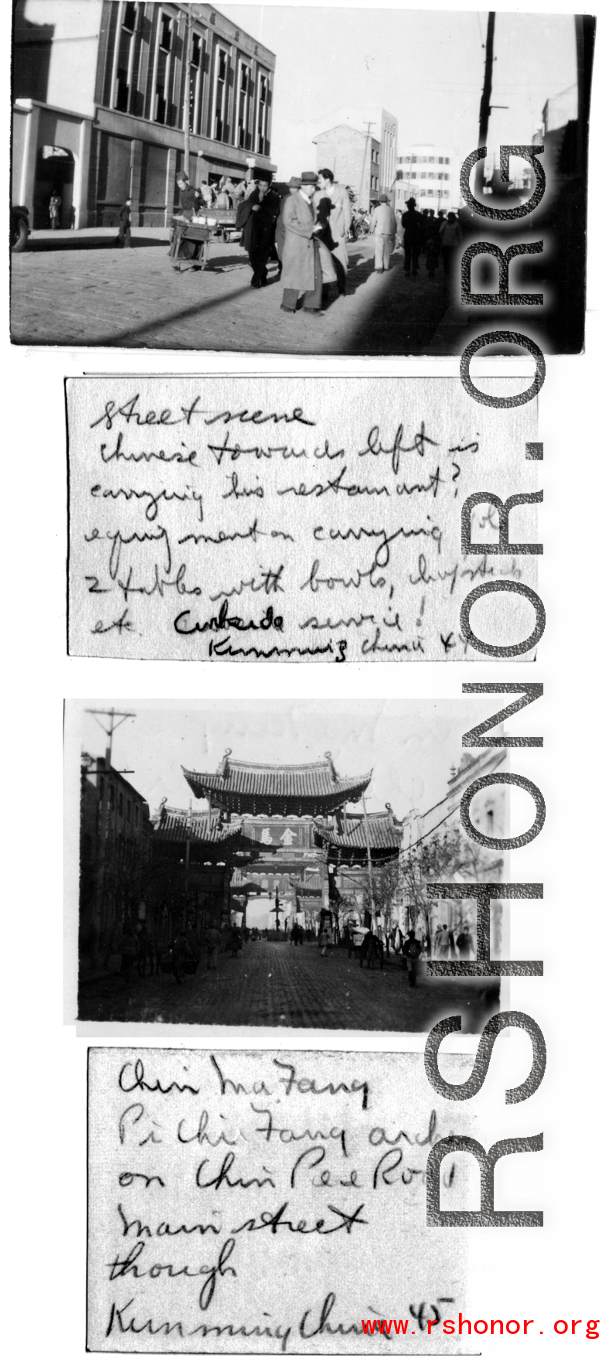 street scene
Chinese towards left is
carrying his restaurant?
equipment on carrying
2 tables with bowls, chopsticks
etc. Curbside service!
Kunming China 45
金馬
Chin Ma Fang
Pi Chi Fang arch
on Chin Pee Road
main street
though
Kunming China 45
RSHONOR.ORG
www.rshonor.org